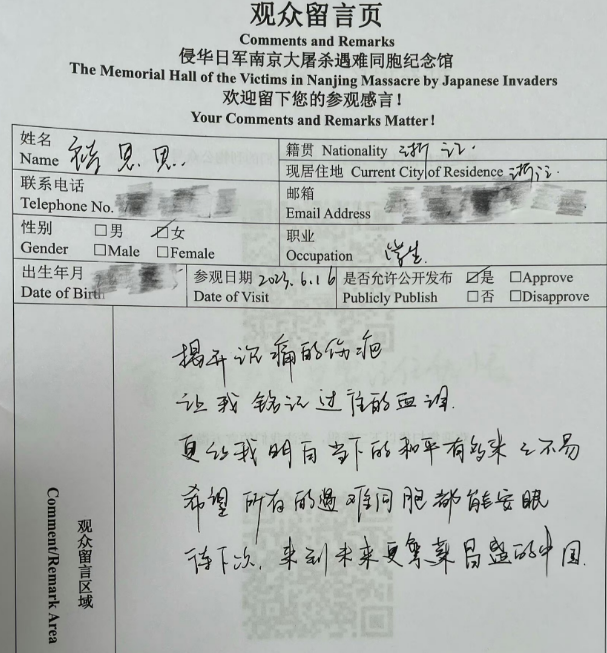 观众留言页
Comments and Remarks
侵华日军南京大屠杀遇难同胞纪念馆
The Memorial Hall of the Victims in Nanjing Massacre by Japanese Invaders
欢迎留下您的参观感言!
Your Comments and Remarks Matter!
姓名
Name 思思
籍贯 Nationality 浙江
现居住地 Current City of Residence 浙江
联系电话
Telephone No.
邮箱
Email Address
性别 □男 ☑女
Gender □Male □Female
职业
Occupation 学生
出生年月
Date of Birth
参观日期 2023.6.16
Date of Visit
是否允许公开发布 ☑是 □Approve
Publicly Publish □否 □Disapprove
观众留言区域
Comment/Remark Area
揭开沉痛的伤疤
让我铭记过往的血泪
更让我明白当下的和平有多来之不易
希望所有的遇难同胞都能安眠
待下次,来到未来更繁荣昌盛的中国